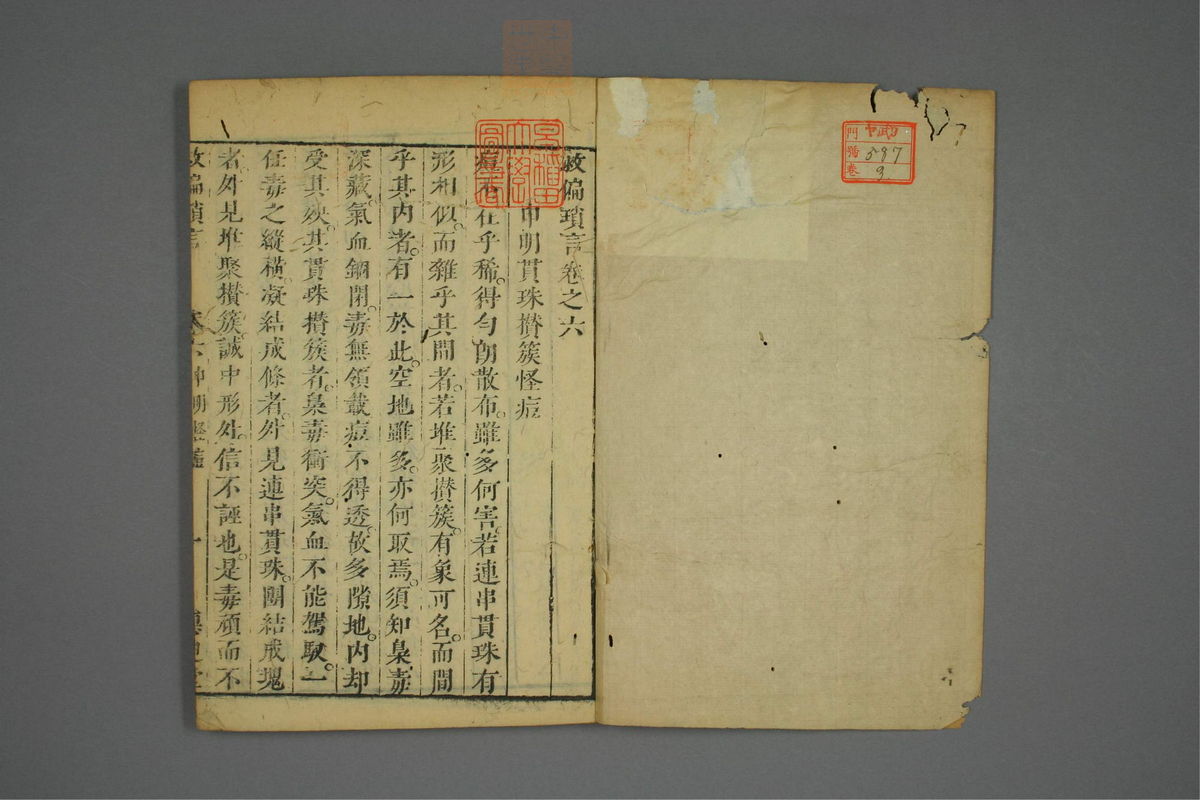 救偏瑣言卷之六
申明貫珠攅簇怪痘
痘不在乎稀。得勻朗散布。雖多何害。若連串貫珠有
形相似。而雜乎其間者。若堆聚攅簇。有象可名。而間
乎其內者。有一於此。空地雖多。亦何取焉。須知梟毒
深藏。氣血錮閉。毒無領載。痘不得透。故多隙地。内却
受其殃。其貫珠攅簇者。梟毒衝突。氣血不能駕馭。一
任毒之縱橫。凝結成條者。外見連串貫珠。團結成塊
者。外見堆聚攅簇。誠中形外。信不誣也。是毒頑而不
救偏瑣言
卷六
門
號
卷
587
9